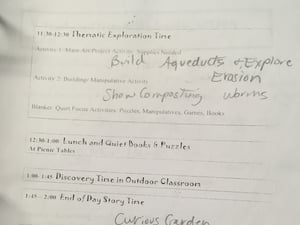 11:30-12:30 Thematic Exploration Time
Activity 1: Main Art/Project Activity Supplies Needed
Build Aqueducts & Explore
Erosion
Activity 2: Building/Manipulative Activity
Show Composting worms
Blanket: Quiet Focus Activities: Puzzles, Manipulatives, Games, Books
12:30-1:00 Lunch and Quiet Books & Puzzles
At Picnic Tables
1:00-1:45 Discovery Time in Outdoor Classroom
1:45 - 2:00 End of Day Story Time
Curious Garden